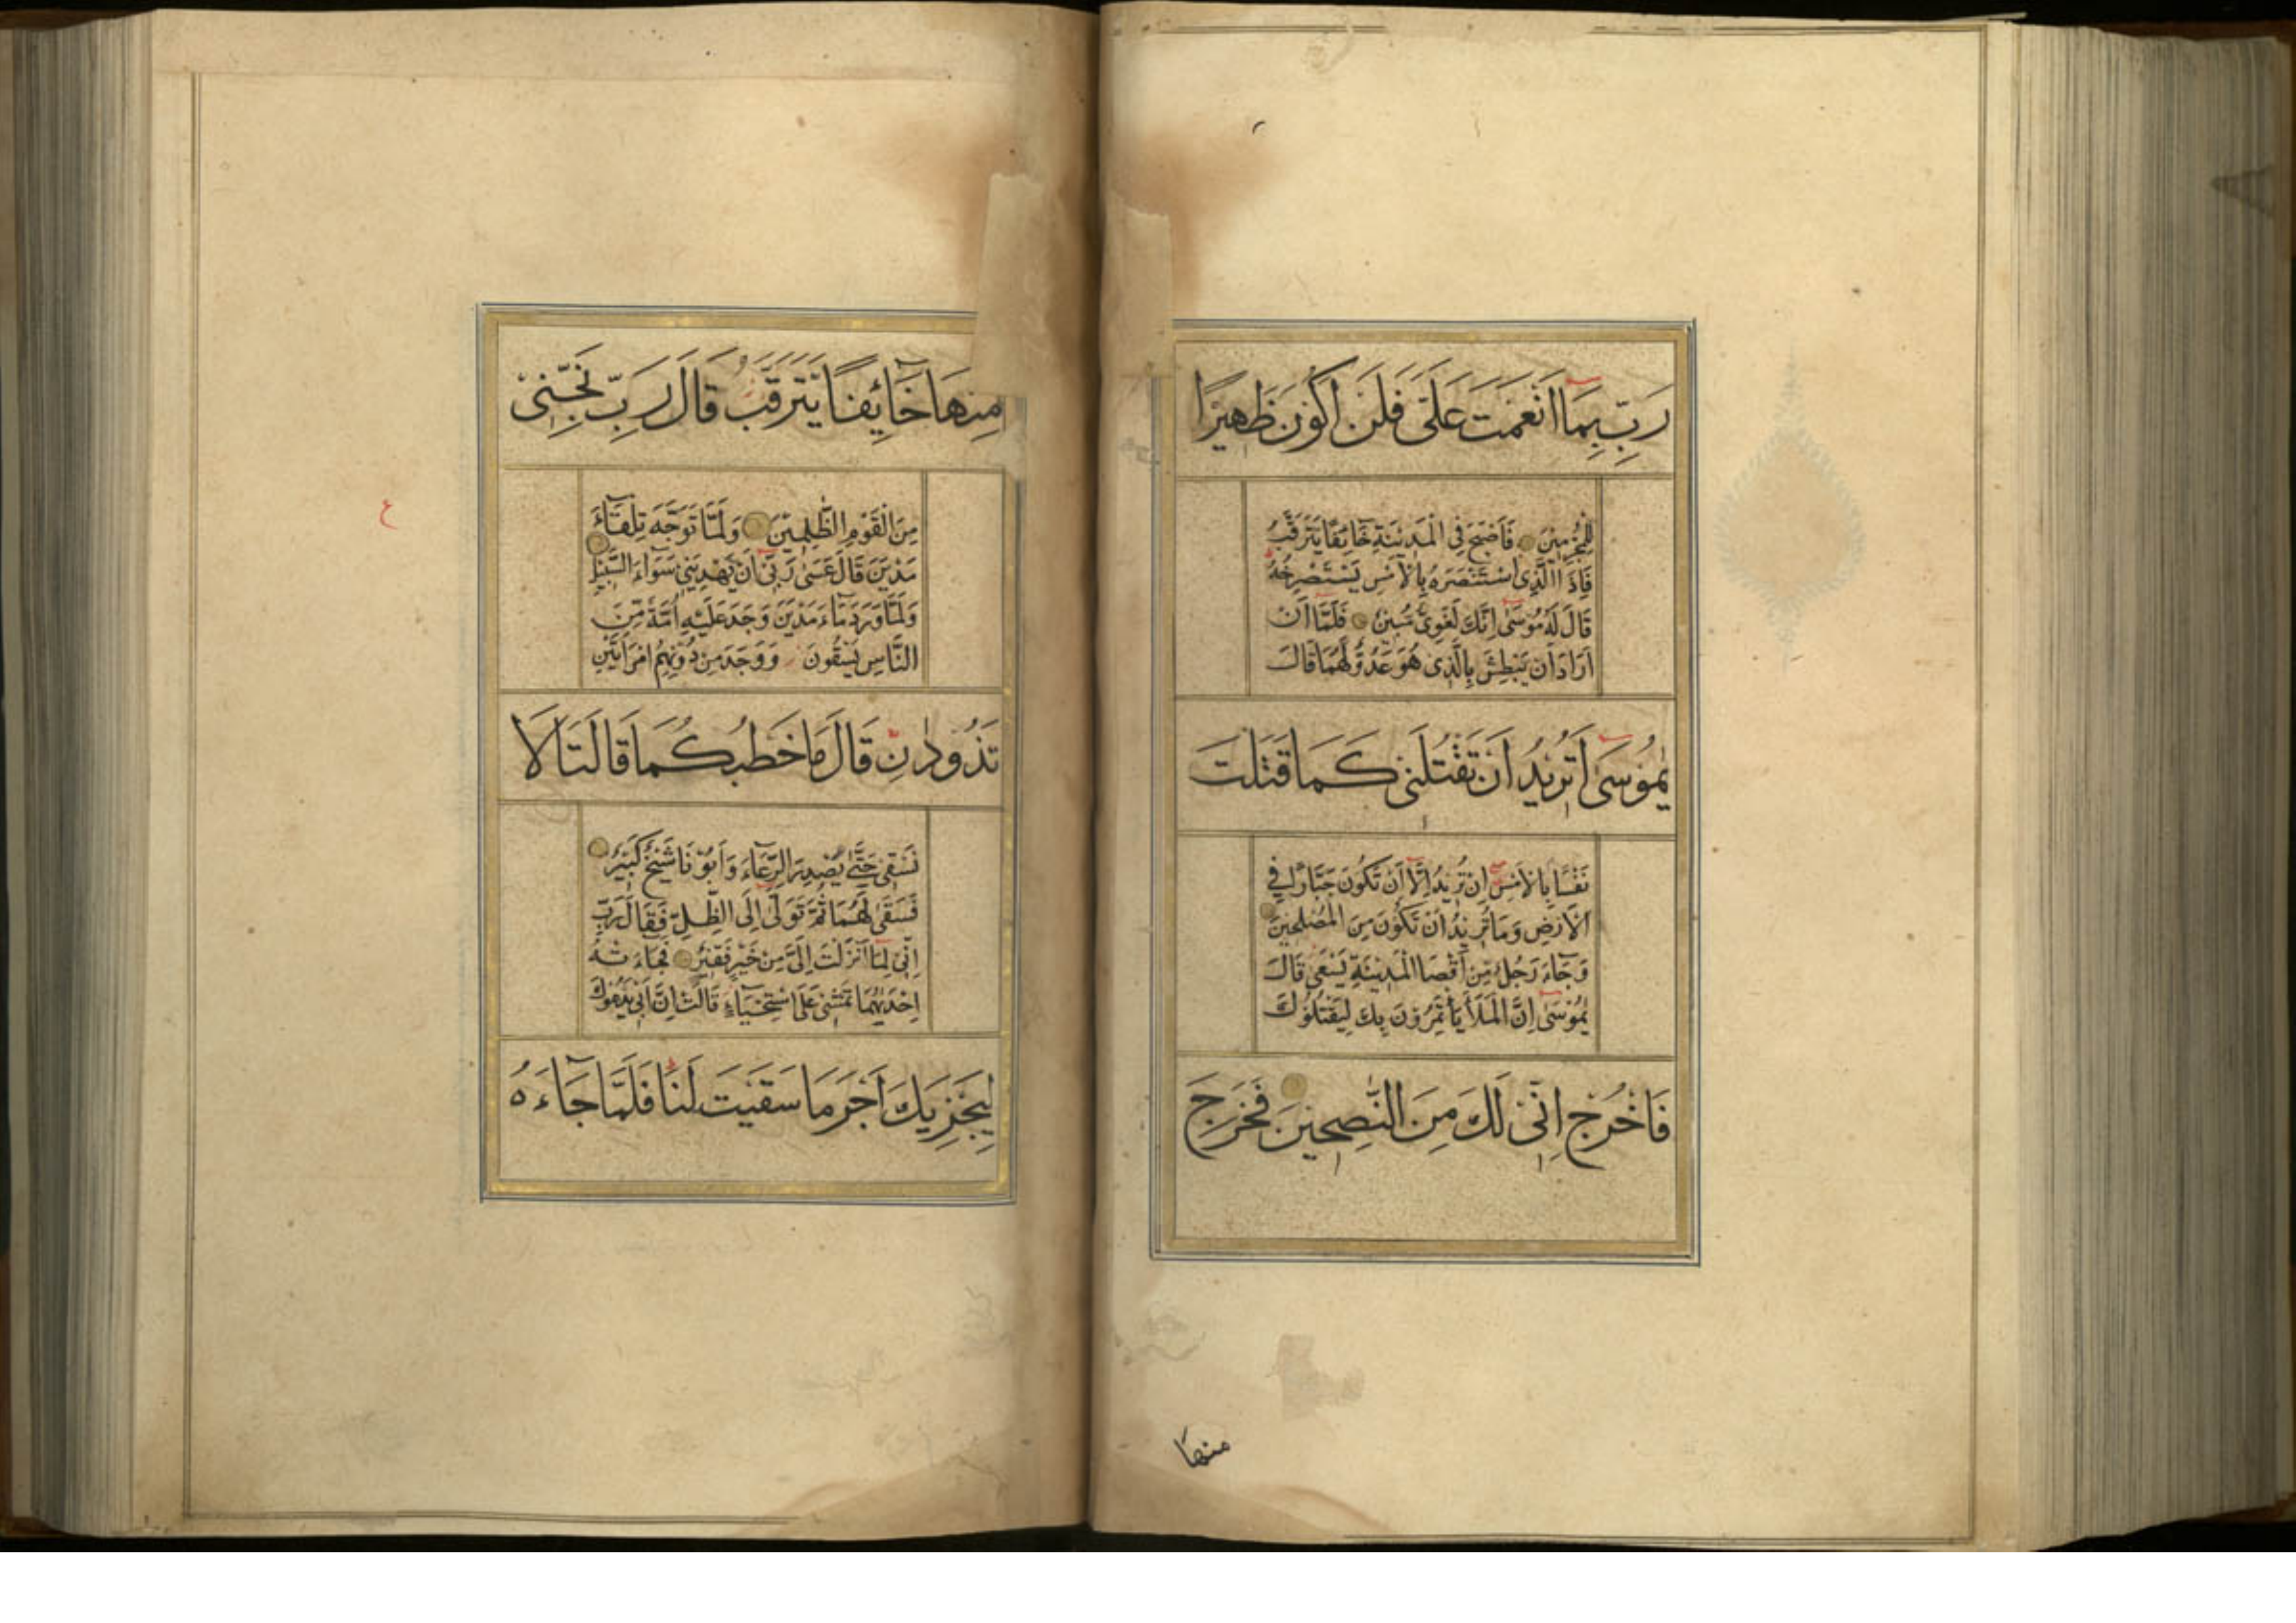 رَبِّ بِمَا اَنْعَمْتَ عَلَىَّ فَلَنْ اَكُونَ ظَهِيرًا
لِلْمُجْرِمِينَ فَاَصْبَحَ فِى الْمَدِينَةِ خَائِفًا يَتَرَقَّبُ
فَاِذَا الَّذِى اسْتَنْصَرَهُ بِالْاَمْسِ يَسْتَصْرِخُهُ
قَالَ لَهُ مُوسَى اِنَّكَ لَغَوِىٌّ مُبِينٌ فَلَمَّا اَنْ
اَرَادَ اَنْ يَبْطِشَ بِالَّذِى هُوَ عَدُوٌّ لَهُمَا قَالَ
يٰمُوسَى اَتُرِيدُ اَنْ تَقْتُلَنِى كَمَا قَتَلْتَ
نَفْسًا بِالْاَمْسِ اِنْ تُرِيدُ اِلَّا اَنْ تَكُونَ جَبَّارًا فِى
الْاَرْضِ وَمَا تُرِيدُ اَنْ تَكُونَ مِنَ الْمُصْلِحِينَ
وَجَاءَ رَجُلٌ مِنْ اَقْصَا الْمَدِينَةِ يَسْعَى قَالَ
يٰمُوسَى اِنَّ الْمَلَاَ يَأْتَمِرُونَ بِكَ لِيَقْتُلُوكَ
فَاخْرُجْ اِنِّى لَكَ مِنَ النّٰصِحِينَ فَخَرَجَ
منها
مِنْهَا خَآئِفًا يَتَرَقَّبُ قَالَ رَبِّ نَجِّنِى
مِنَ الْقَوْمِ الظّٰلِمِينَ وَلَمَّا تَوَجَّهَ تِلْقَآءَ
مَدْيَنَ قَالَ عَسَى رَبِّى اَنْ يَهْدِيَنِى سَوَآءَ السَّبِيلِ
وَلَمَّا وَرَدَ مَآءَ مَدْيَنَ وَجَدَ عَلَيْهِ اُمَّةً مِّنَ
النَّاسِ يَسْقُونَ وَوَجَدَ مِنْ دُونِهِمُ امْرَاَتَيْنِ
تَذُودَانِ قَالَ مَا خَطْبُكُمَا قَالَتَا لَا
نَسْقِى حَتَّى يُصْدِرَ الرِّعَآءُ وَاَبُونَا شَيْخٌ كَبِيرٌ
فَسَقَى لَهُمَا ثُمَّ تَوَلَّى اِلَى الظِّلِّ فَقَالَ رَبِّ
اِنِّى لِمَا اَنْزَلْتَ اِلَىَّ مِنْ خَيْرٍ فَقِيرٌ فَجَاءَتْهُ
اِحْدٰيهُمَا تَمْشِى عَلَى اسْتِحْيَآءٍ قَالَتْ اِنَّ اَبِى يَدْعُوكَ
لِيَجْزِيَكَ اَجْرَ مَا سَقَيْتَ لَنَا فَلَمَّا جَآءَهُ
ع